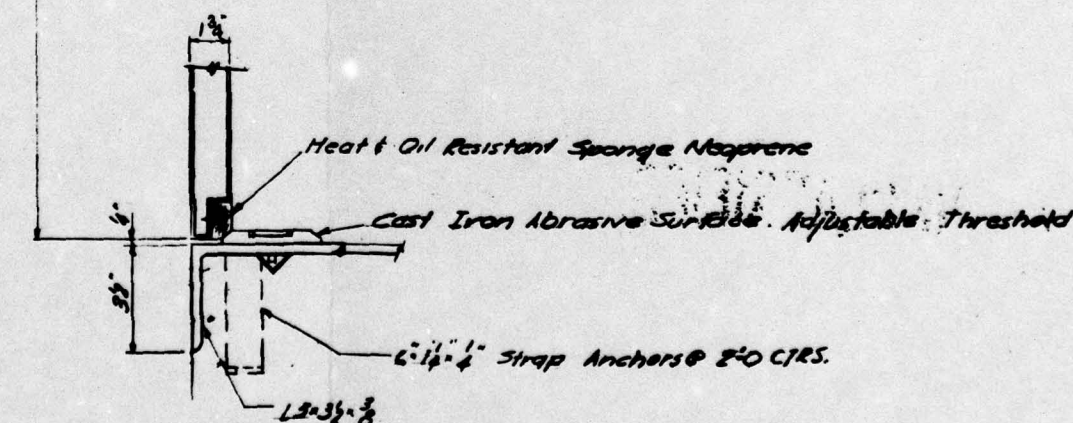 1 3/4"
Heat & Oil Resistant Sponge Neoprene
Cast Iron Abrasive Surface Adjustable Threshold
3 1/2"
6"×1 1/4"×1/4" Strap Anchors @ 2'-0 CTRS.